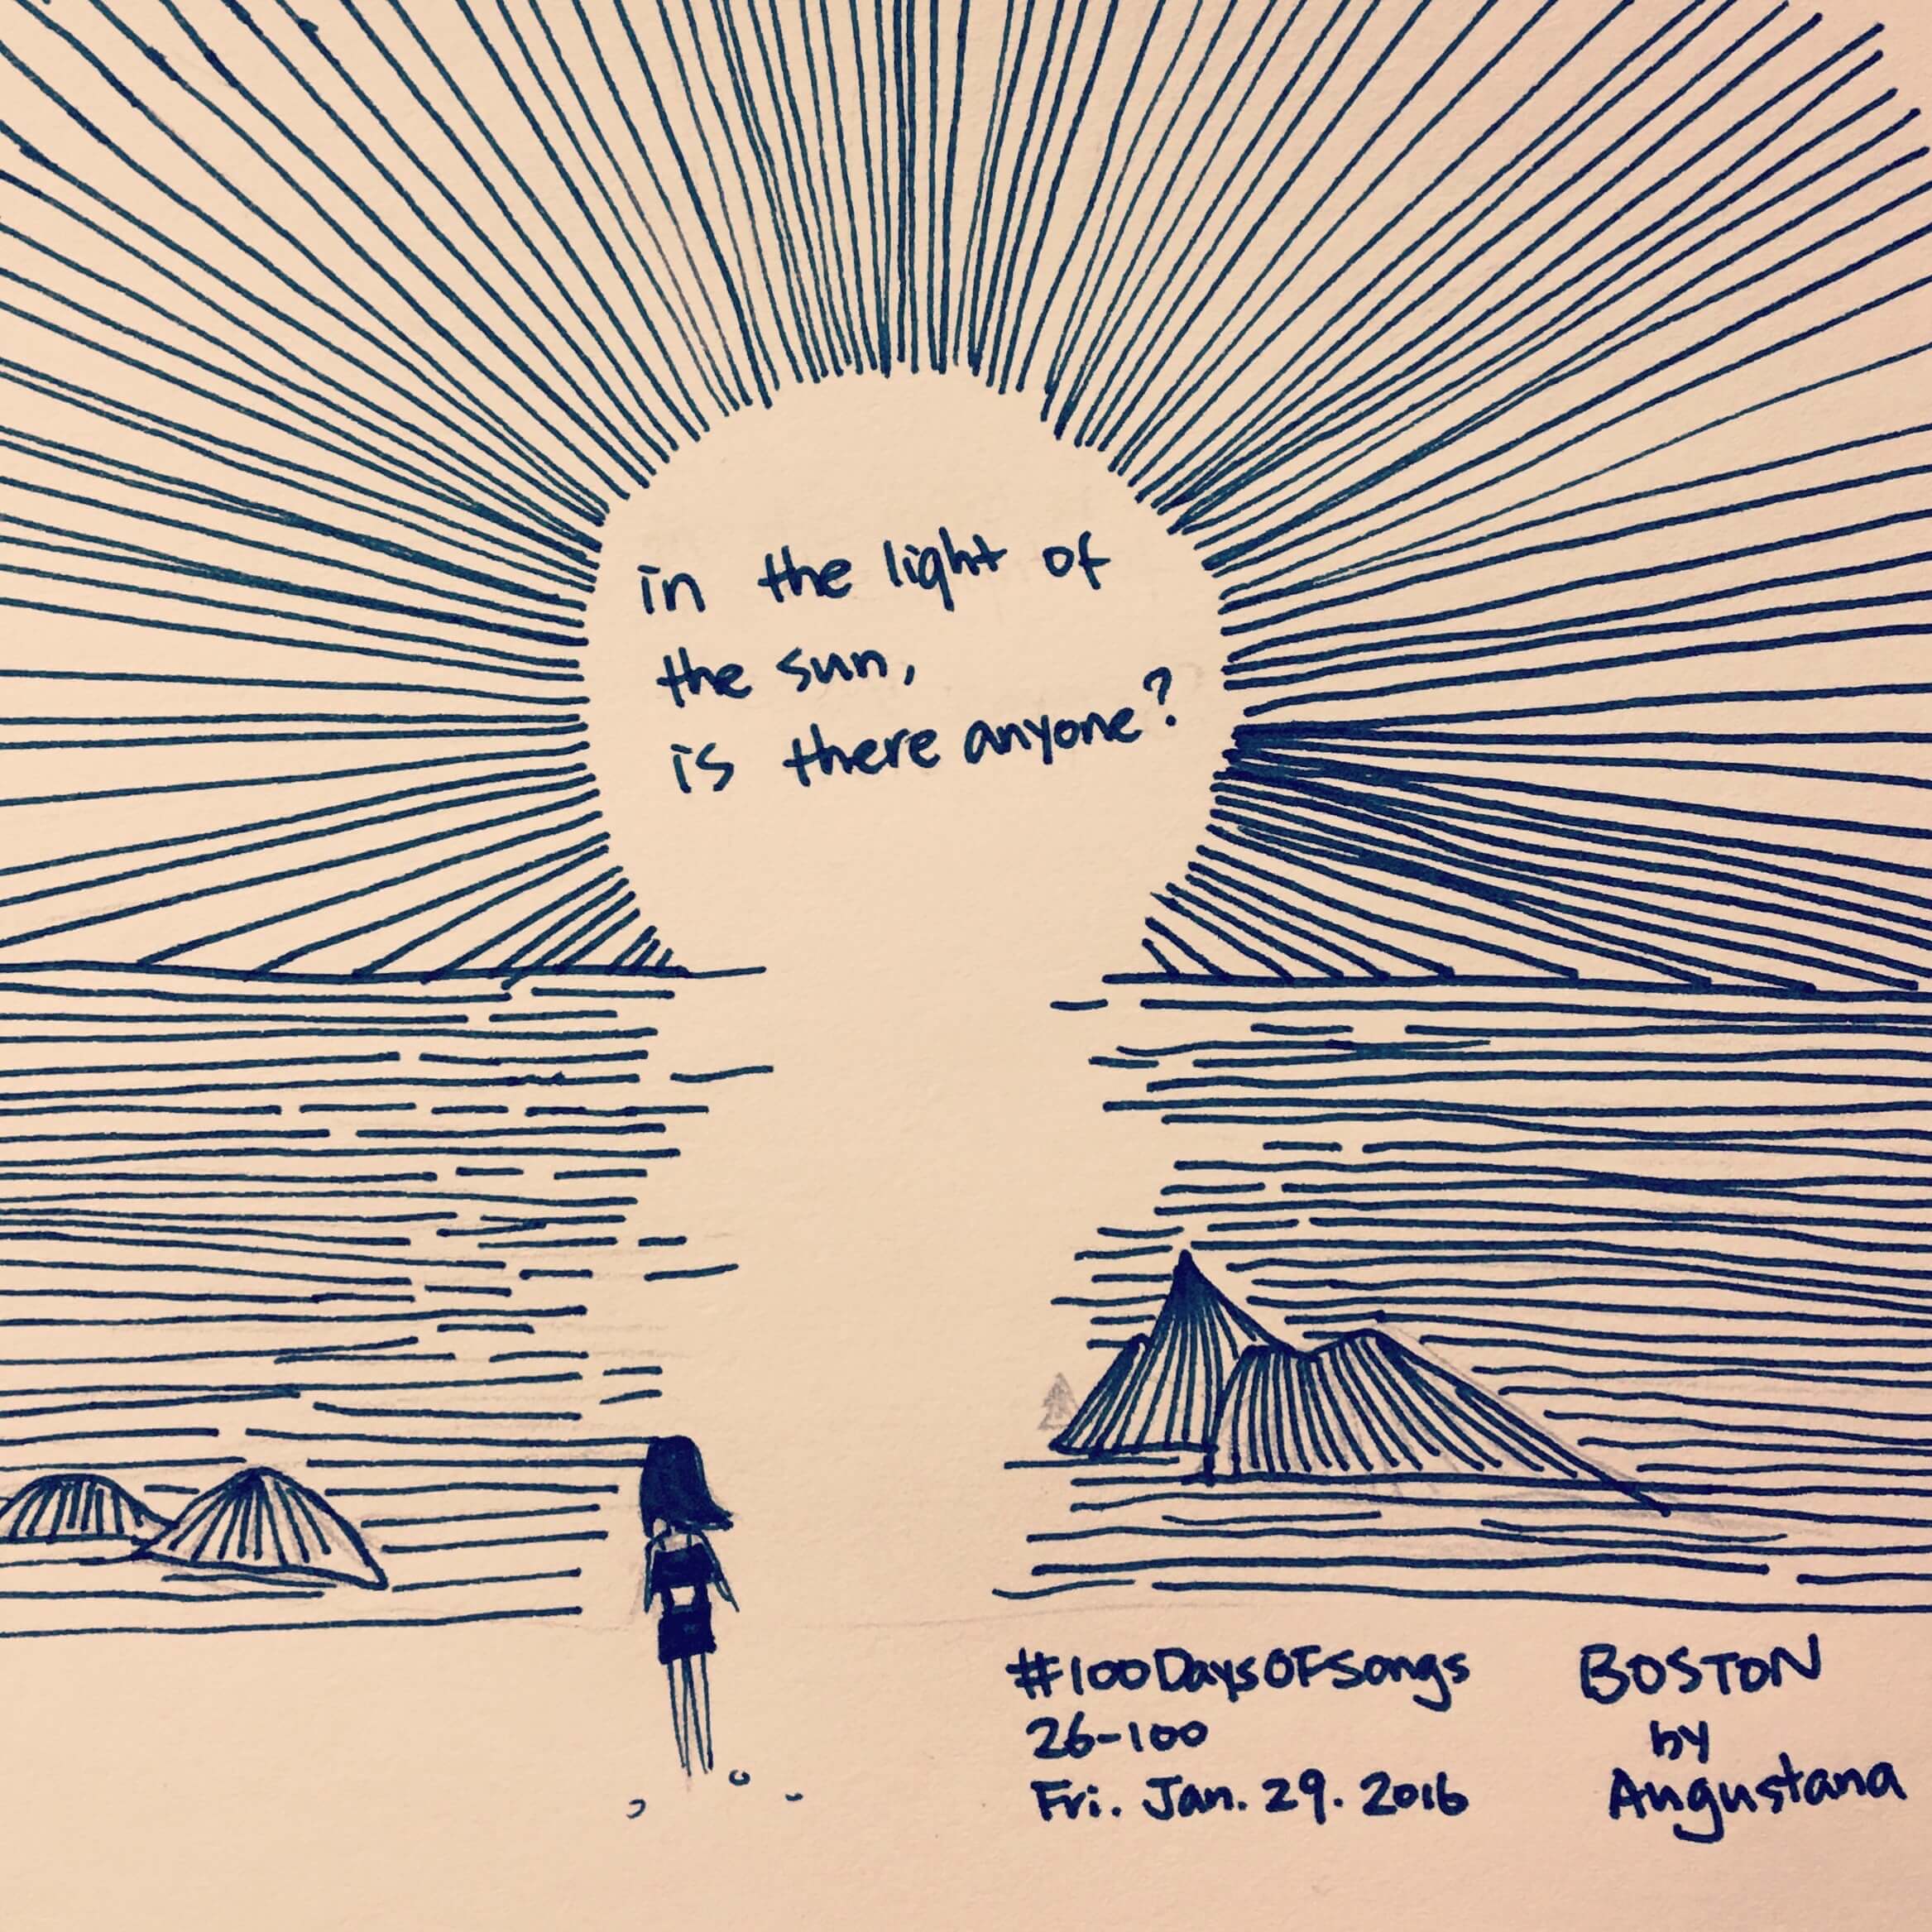 in the light of
the sun,
is there anyone?
#100DaysOFSongs
26-100
Fri. Jan. 29. 2016
BOSTON
by
Augustana